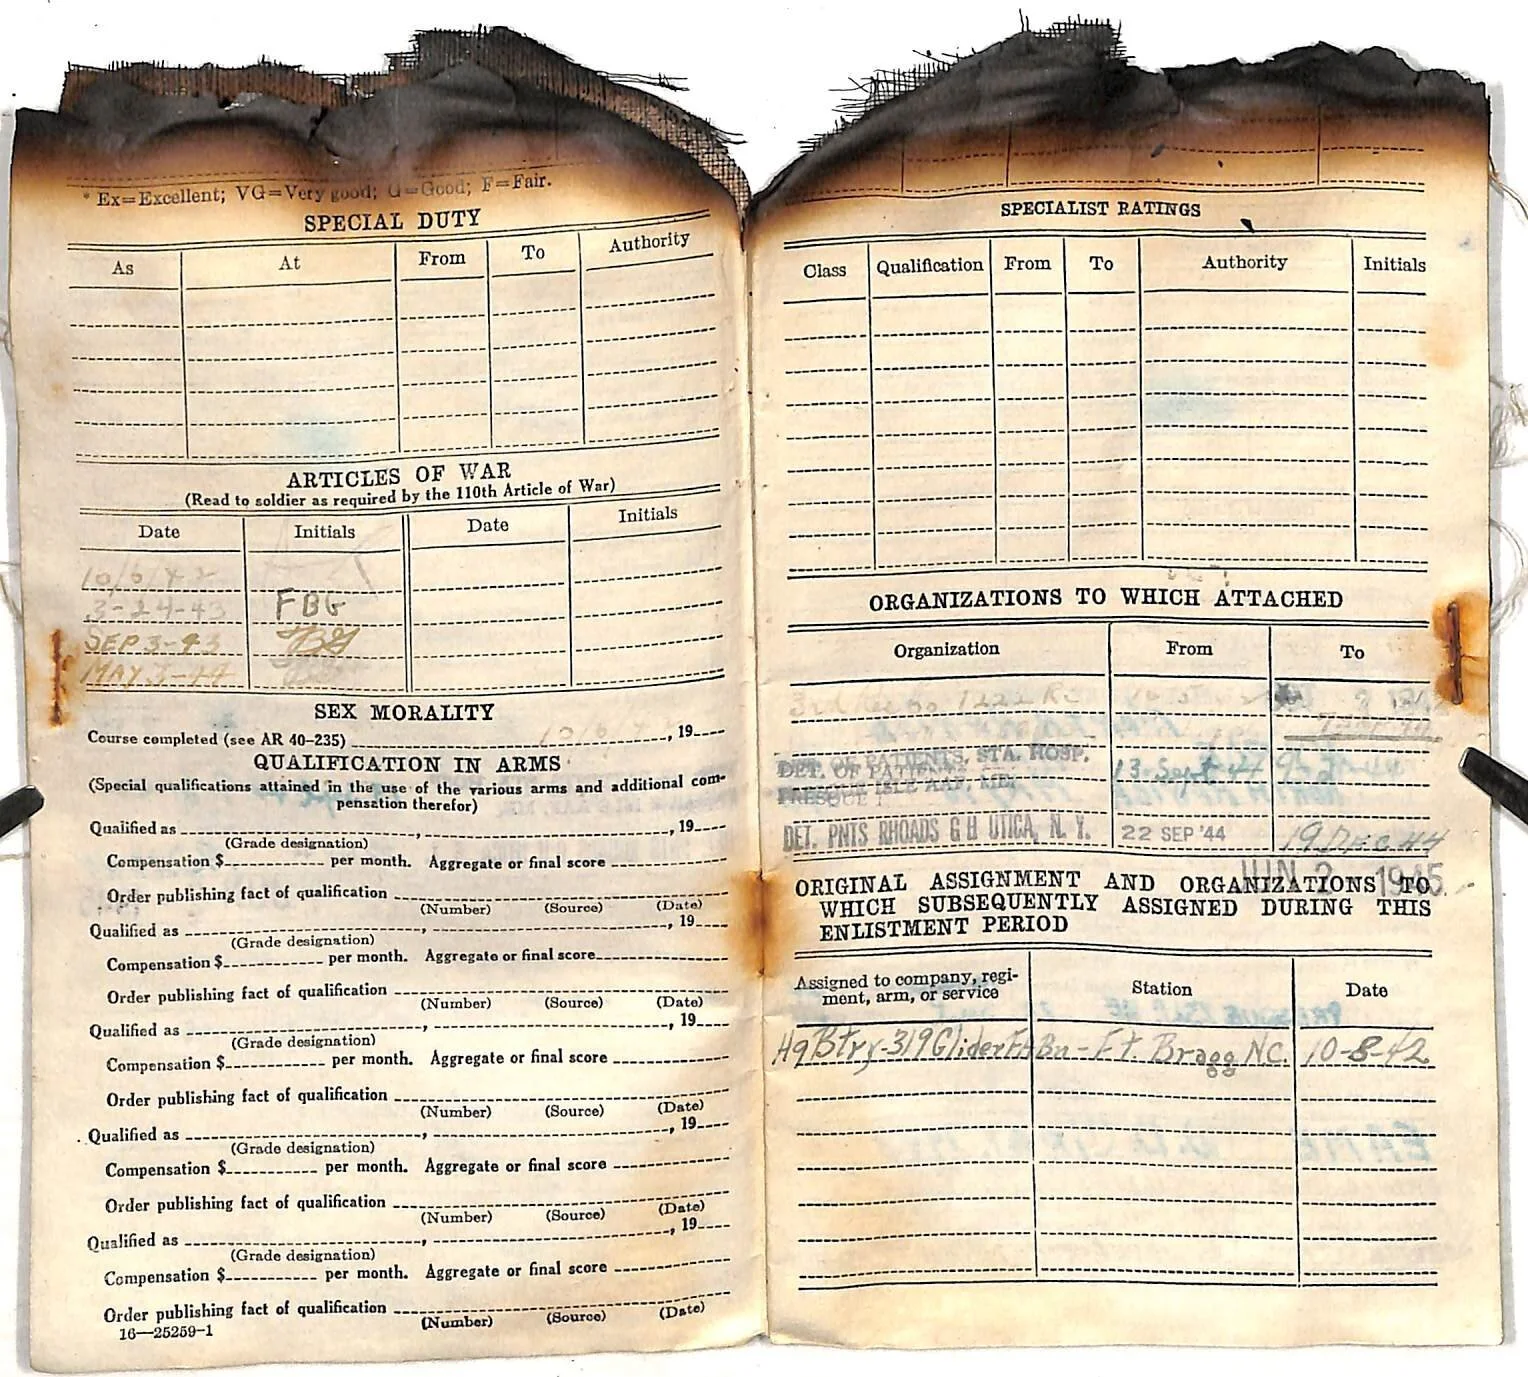 * Ex=Excellent; VG=Very good; G=Good; F=Fair.
SPECIAL DUTY
As At From To Authority
ARTICLES OF WAR
(Read to soldier as required by the 110th Article of War)
Date Initials Date Initials
10/6/42
3-24-43 FBG
SEP 3-43 FBG
MAY 3-44
SEX MORALITY
Course completed (see AR 40-235) 10/6/42, 19
QUALIFICATION IN ARMS
(Special qualifications attained in the use of the various arms and additional com-
pensation therefor)
Qualified as , , 19
(Grade designation)
Compensation $ per month. Aggregate or final score
Order publishing fact of qualification
(Number) (Source) (Date)
Qualified as , , 19
(Grade designation)
Compensation $ per month. Aggregate or final score
Order publishing fact of qualification
(Number) (Source) (Date)
Qualified as , , 19
(Grade designation)
Compensation $ per month. Aggregate or final score
Order publishing fact of qualification
(Number) (Source) (Date)
Qualified as , , 19
(Grade designation)
Compensation $ per month. Aggregate or final score
Order publishing fact of qualification
(Number) (Source) (Date)
Qualified as , , 19
(Grade designation)
Compensation $ per month. Aggregate or final score
Order publishing fact of qualification
(Number) (Source) (Date)
16—25259-1
SPECIALIST RATINGS
Class Qualification From To Authority Initials
ORGANIZATIONS TO WHICH ATTACHED
Organization From To
3rd 1222
DET. OF PATIENTS, STA. HOSP.
DET. OF PATIENTS 13 Sept 44
PRESQUE ISLE AAF, ME.
DET. PNTS RHOADS G H UTICA, N. Y. 22 SEP '44 19 Dec 44
JUN 2 1945
ORIGINAL ASSIGNMENT AND ORGANIZATIONS TO
WHICH SUBSEQUENTLY ASSIGNED DURING THIS
ENLISTMENT PERIOD
Assigned to company, regi-
ment, arm, or service Station Date
Hq Btry-319 Glider FA Bn - Ft. Bragg NC. 10-8-42